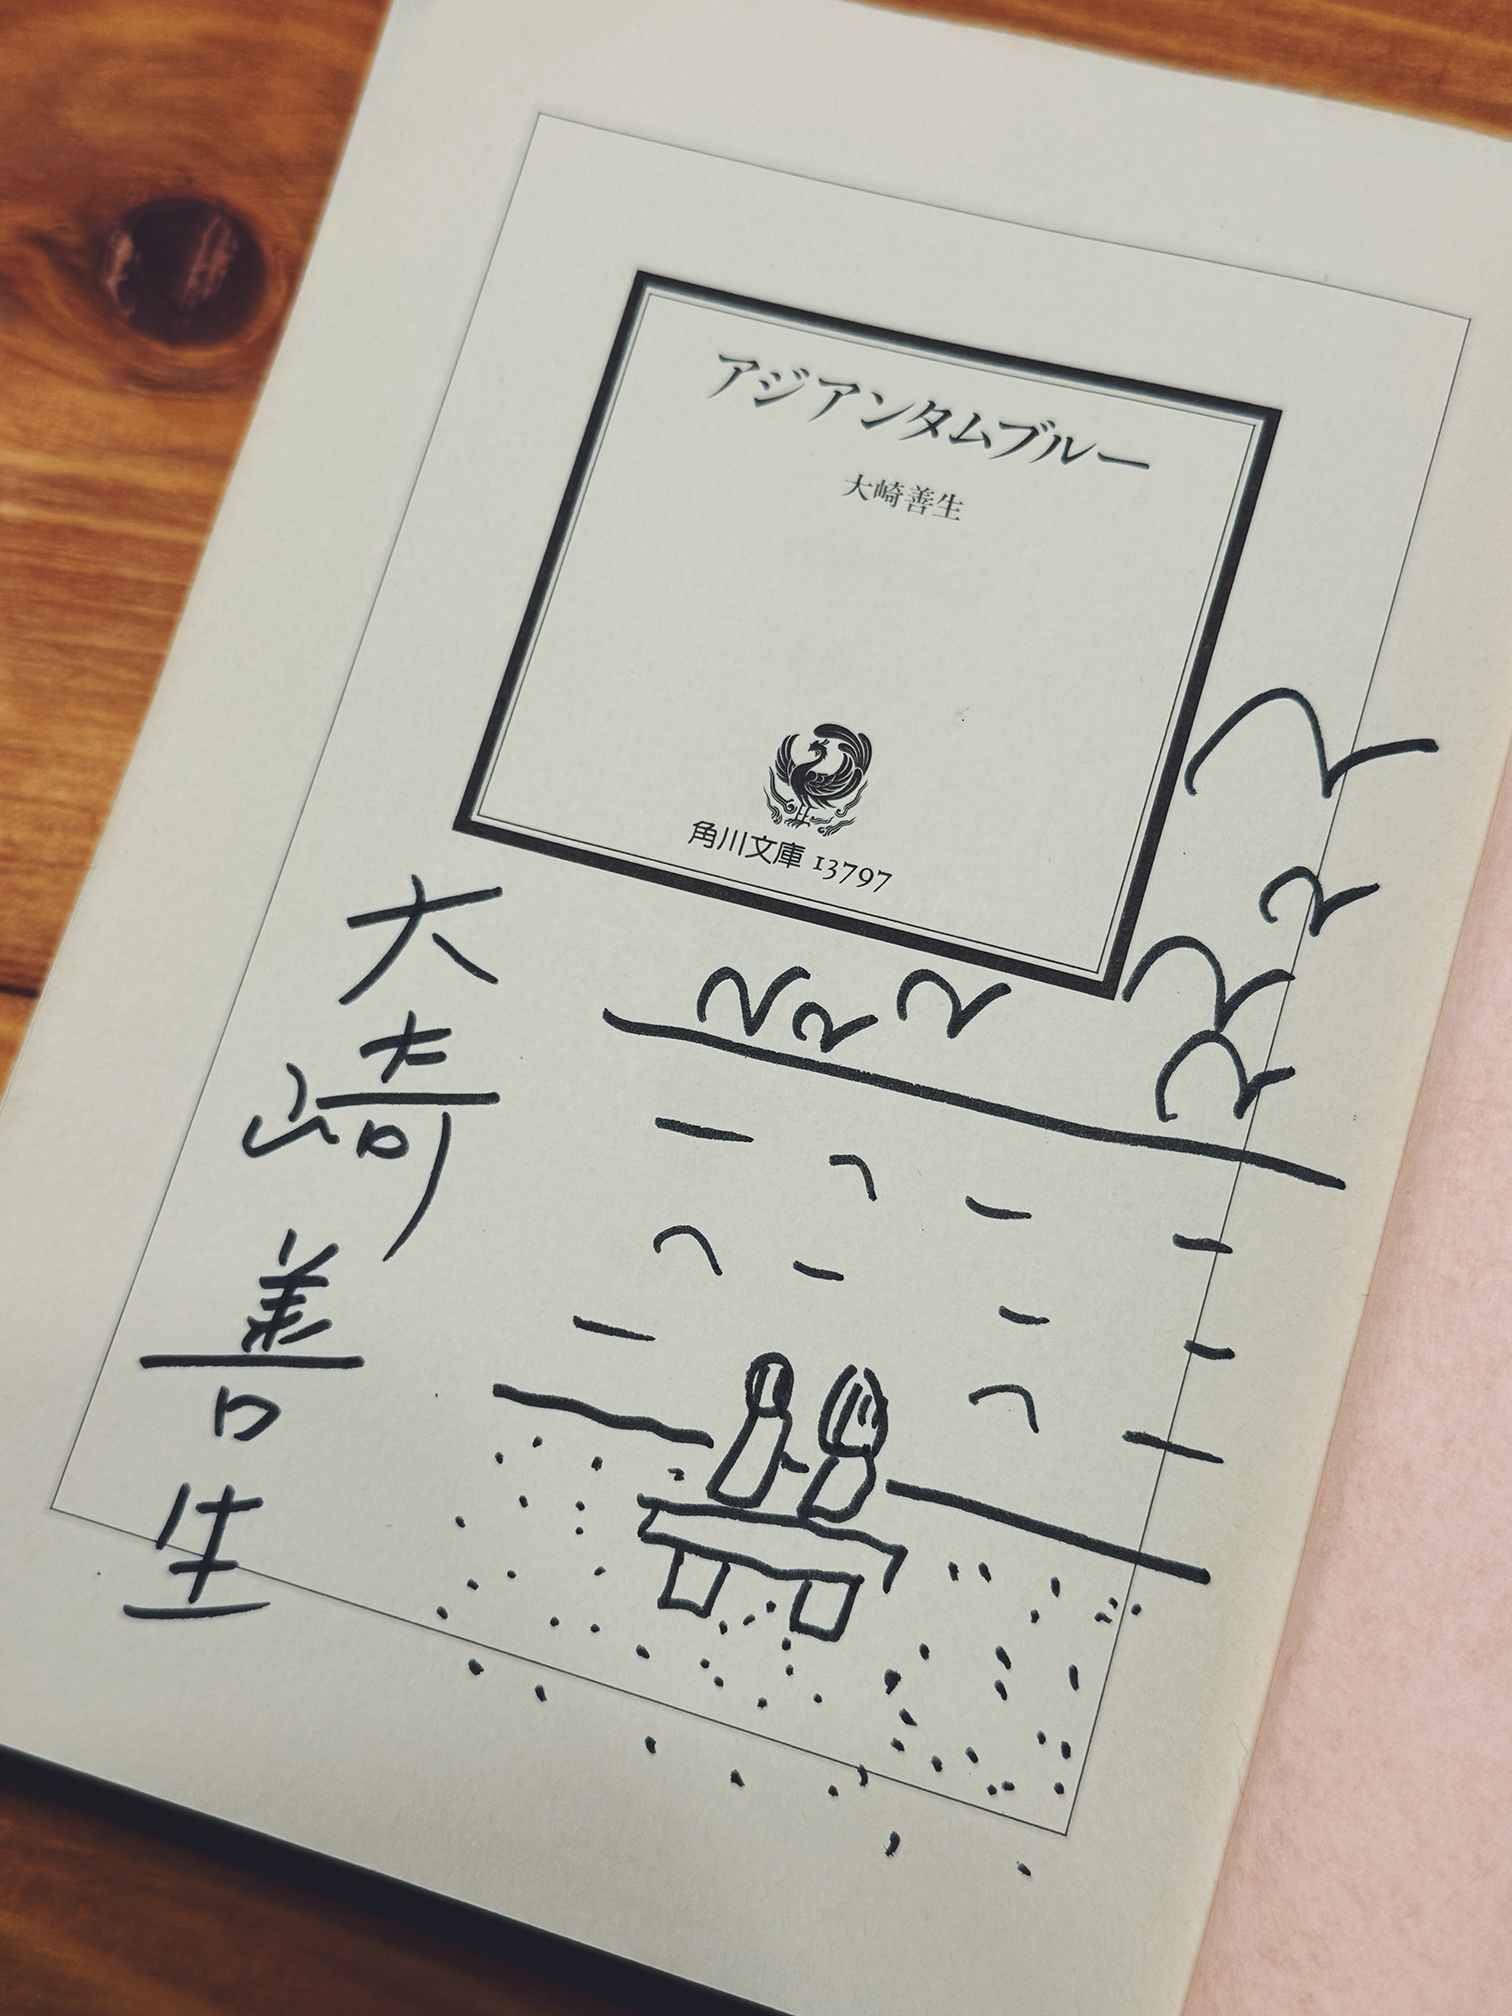 アジアンタムブルー
大崎善生
角川文庫 13797
大崎善生